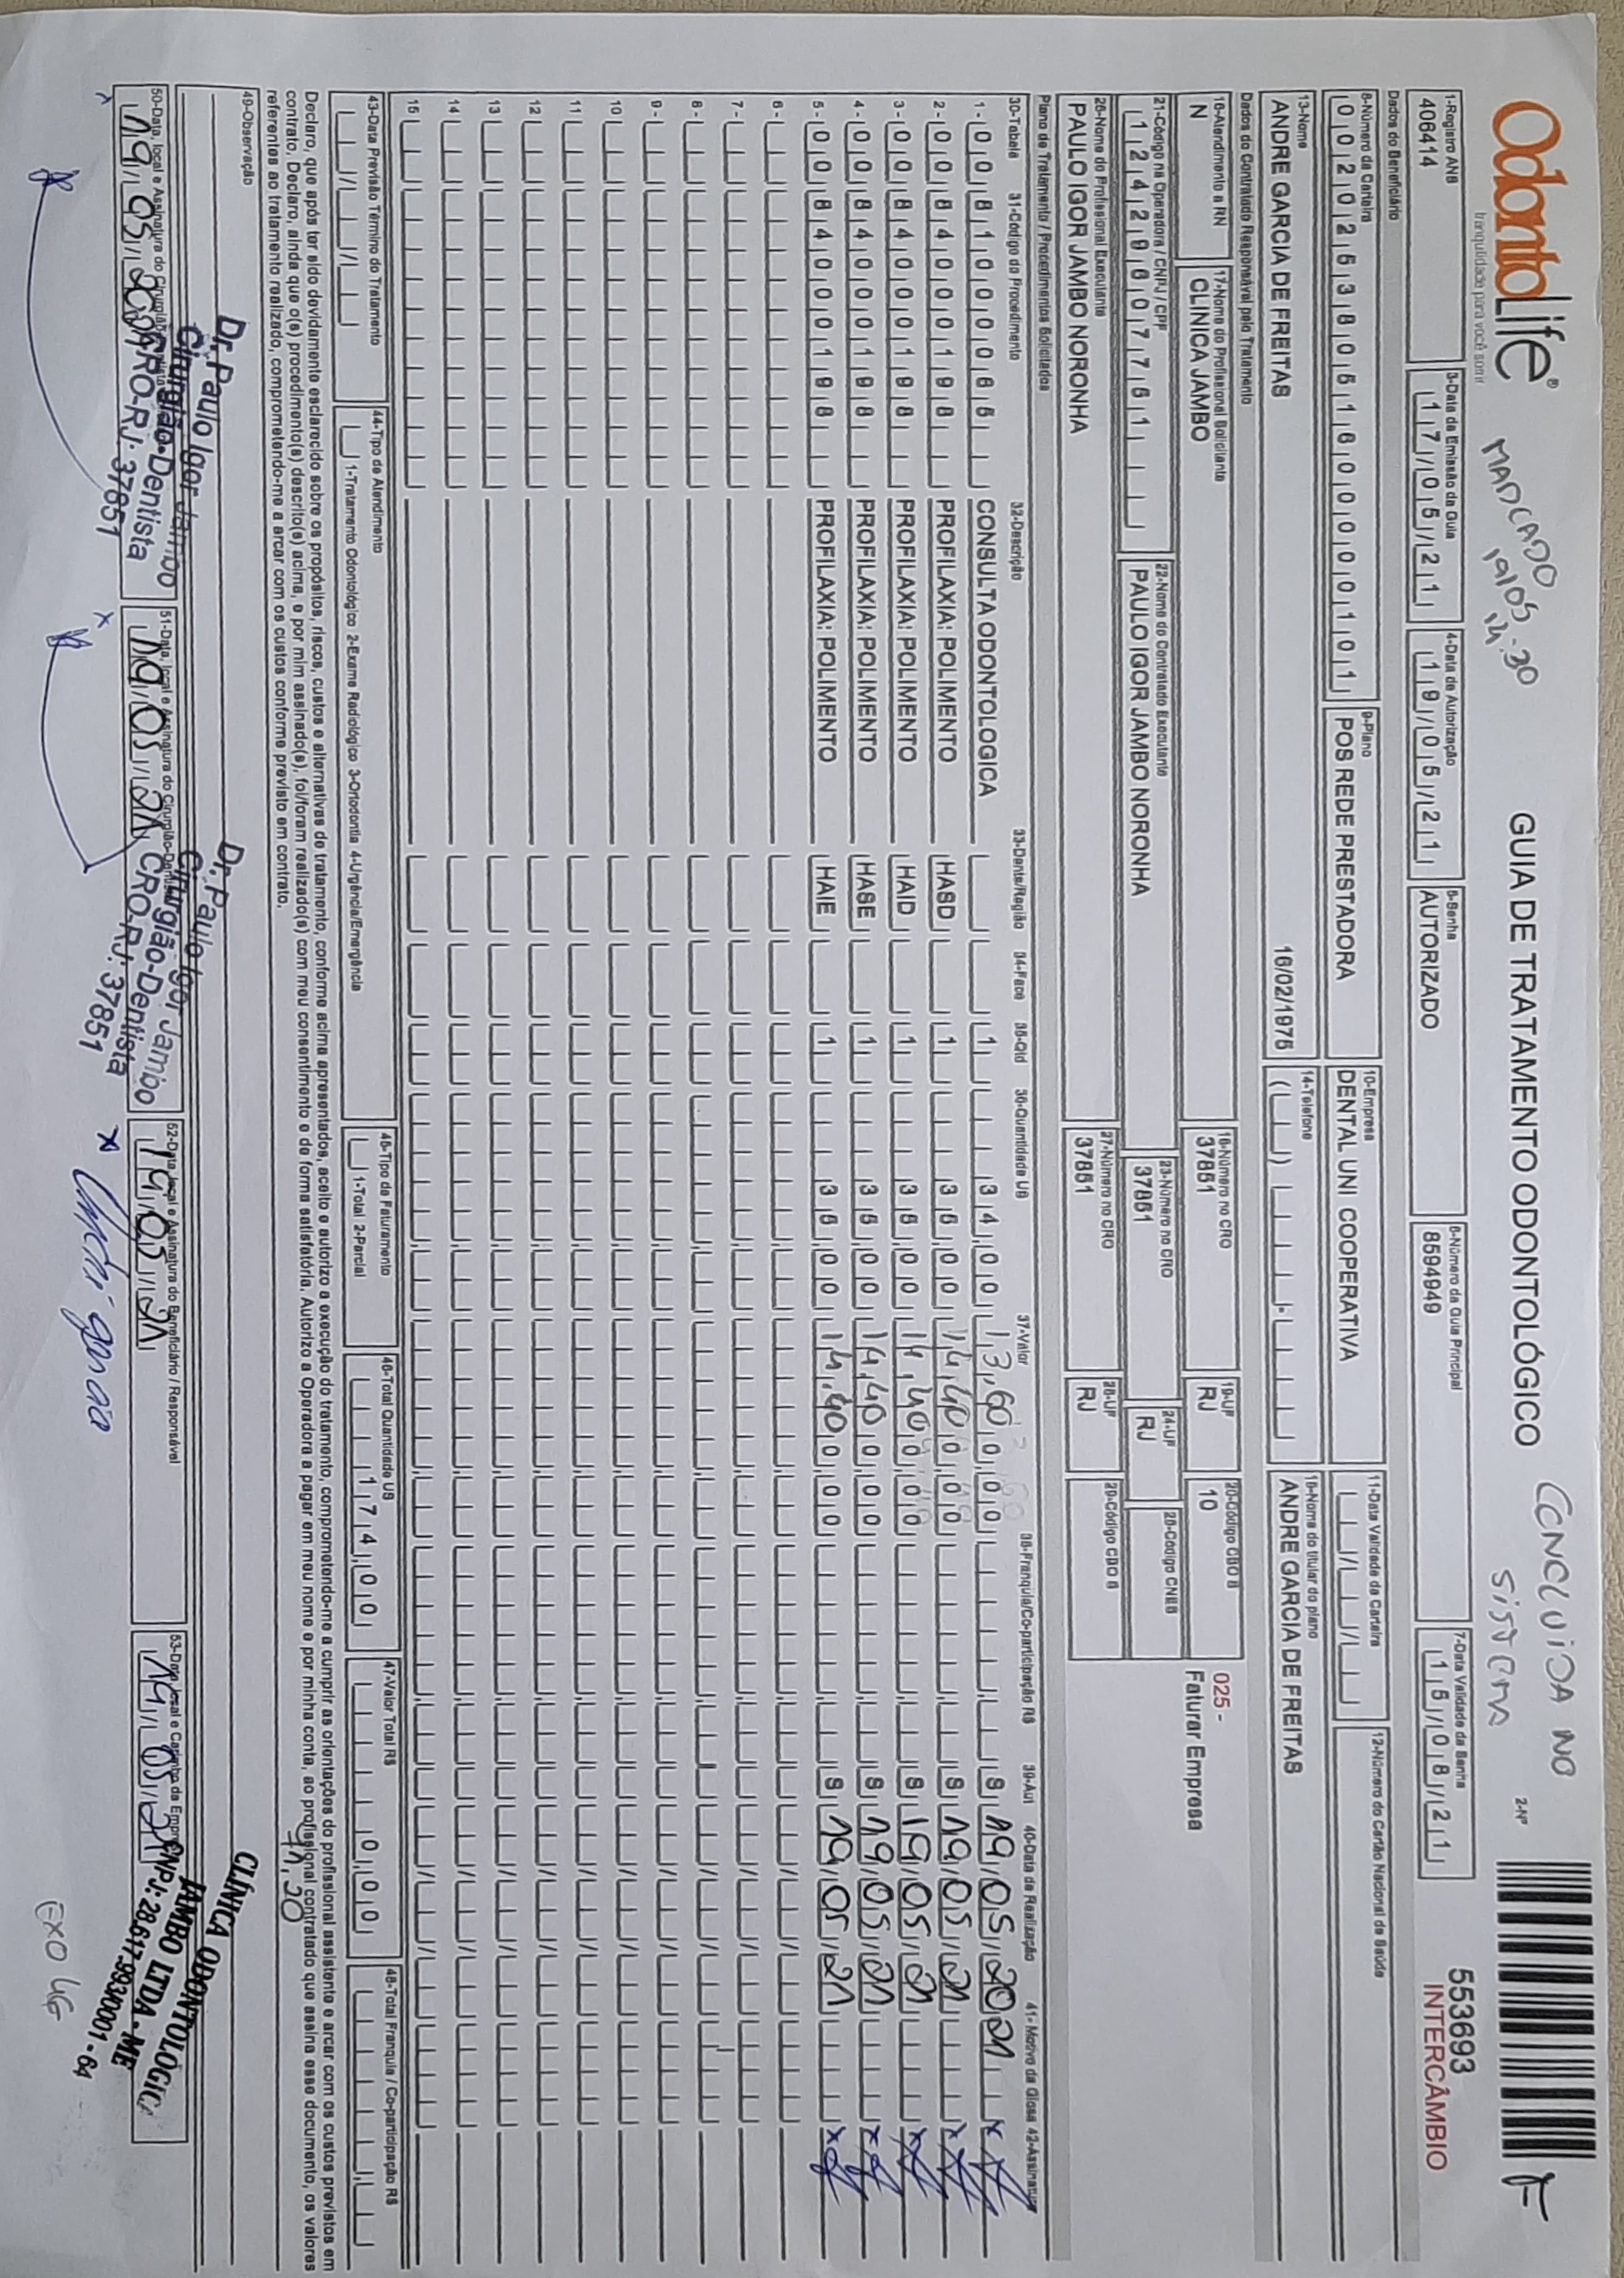 OdontoLife®
tranquilidade para você sorrir
MARCADO
19/05 14.30
GUIA DE TRATAMENTO ODONTOLÓGICO
CONCLUIDA NO
SISTEMA
2-Nº
553693
INTERCÂMBIO
1-Registro ANS
406414
3-Data de Emissão da Guia
17/05/21
4-Data de Autorização
19/05/21
5-Senha
AUTORIZADO
6-Número da Guia Principal
8594949
7-Data Validade da Senha
15/08/21
Dados do Beneficiário
8-Número da Carteira
00202538051600000101
9-Plano
POS REDE PRESTADORA
10-Empresa
DENTAL UNI COOPERATIVA
11-Data Validade da Carteira
12-Número do Cartão Nacional de Saúde
13-Nome
ANDRE GARCIA DE FREITAS
16/02/1975
14-Telefone
15-Nome do titular do plano
ANDRE GARCIA DE FREITAS
Dados do Contratado Responsável pelo Tratamento
16-Atendimento a RN
N
17-Nome do Profissional Solicitante
CLINICA JAMBO
18-Número no CRO
37851
19-UF
RJ
20-Código CBO S
10
025 -
Faturar Empresa
21-Código na Operadora / CNPJ / CPF
12429607751
22-Nome do Contratado Executante
PAULO IGOR JAMBO NORONHA
23-Número no CRO
37851
24-UF
RJ
25-Código CNES
26-Nome do Profissional Executante
PAULO IGOR JAMBO NORONHA
27-Número no CRO
37851
28-UF
RJ
29-Código CBO S
Plano de Tratamento / Procedimentos Solicitados
30-Tabela 31-Código do Procedimento 32-Descrição 33-Dente/Região 34-Face 35-Qtd 36-Quantidade US 37-Valor 38-Franquia/Co-participação R$ 39-Aut 40-Data de Realização 41-Motivo da Glosa 42-Assinatura
1- 00 81000065 CONSULTA ODONTOLOGICA 1 34,00 13,60 0,00 S 19 05 2021 x
2- 00 84000198 PROFILAXIA: POLIMENTO HASD 1 36,00 14,40 0,00 S 19 05 21 x
3- 00 84000198 PROFILAXIA: POLIMENTO HAID 1 36,00 14,40 0,00 S 19 05 21 x
4- 00 84000198 PROFILAXIA: POLIMENTO HASE 1 36,00 14,40 0,00 S 19 05 21 x
5- 00 84000198 PROFILAXIA: POLIMENTO HAIE 1 36,00 14,40 0,00 S 19 05 21 x
6-
7-
8-
9-
10
11
12
13
14
15
43-Data Previsão Término do Tratamento
44-Tipo de Atendimento
1-Tratamento Odontológico 2-Exame Radiológico 3-Ortodontia 4-Urgência/Emergência
45-Tipo de Faturamento
1-Total 2-Parcial
46-Total Quantidade US
174,00
47-Valor Total R$
0,00
71,20
48-Total Franquia / Co-participação R$
Declaro, que após ter sido devidamente esclarecido sobre os propósitos, riscos, custos e alternativas de tratamento, conforme acima apresentados, aceito e autorizo a execução do tratamento, comprometendo-me a cumprir as orientações do profissional assistente e arcar com os custos previstos em
contrato. Declaro, ainda que o(s) procedimento(s) descrito(s) acima, e por mim assinado(s), foi/foram realizado(s) com meu consentimento e de forma satisfatória. Autorizo a Operadora a pagar em meu nome e por minha conta, ao profissional contratado que assina esse documento, os valores
referentes ao tratamento realizado, comprometendo-me a arcar com os custos conforme previsto em contrato.
49-Observação
50-Data, local e Assinatura do Cirurgião-Dentista
19/05/2021
Dr. Paulo Igor Jambo
Cirurgião-Dentista
CRO-RJ: 37851
51-Data, local e Assinatura do Cirurgião-Dentista
19/05/21
Dr. Paulo Igor Jambo
Cirurgião-Dentista
CRO-RJ: 37851
52-Data, local e Assinatura do Beneficiário / Responsável
19/05/21
53-Data, local e Carimbo da Empresa
19/05/21
CLÍNICA ODONTOLÓGICA
JAMBO LTDA - ME
EXO 46